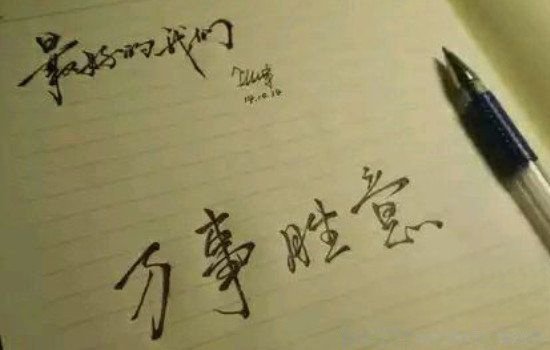 最好的我们
14.10.14
万事胜意